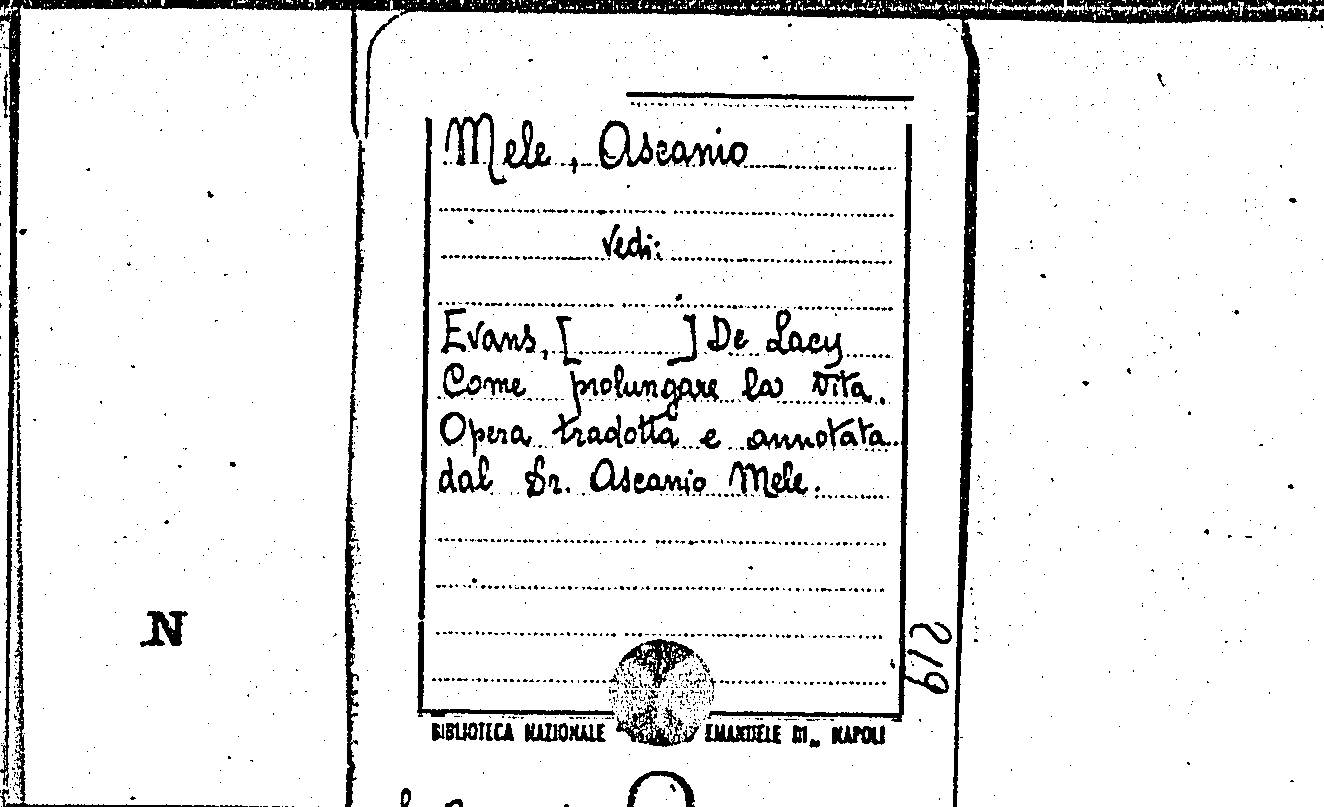 Mele, Ascanio
vedi:
Evans, [ ] De Lacy
Come prolungare la vita.
Opera tradotta e annotata
dal Dr. Ascanio Mele.
N
219
BIBLIOTECA NAZIONALE EMANUELE III„ NAPOLI